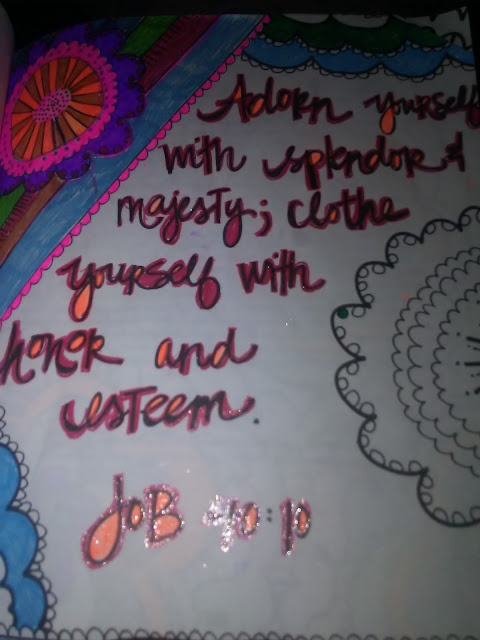 Adorn yourself
with splendor &
majesty; clothe
yourself with
honor and
esteem.
Job 40:10